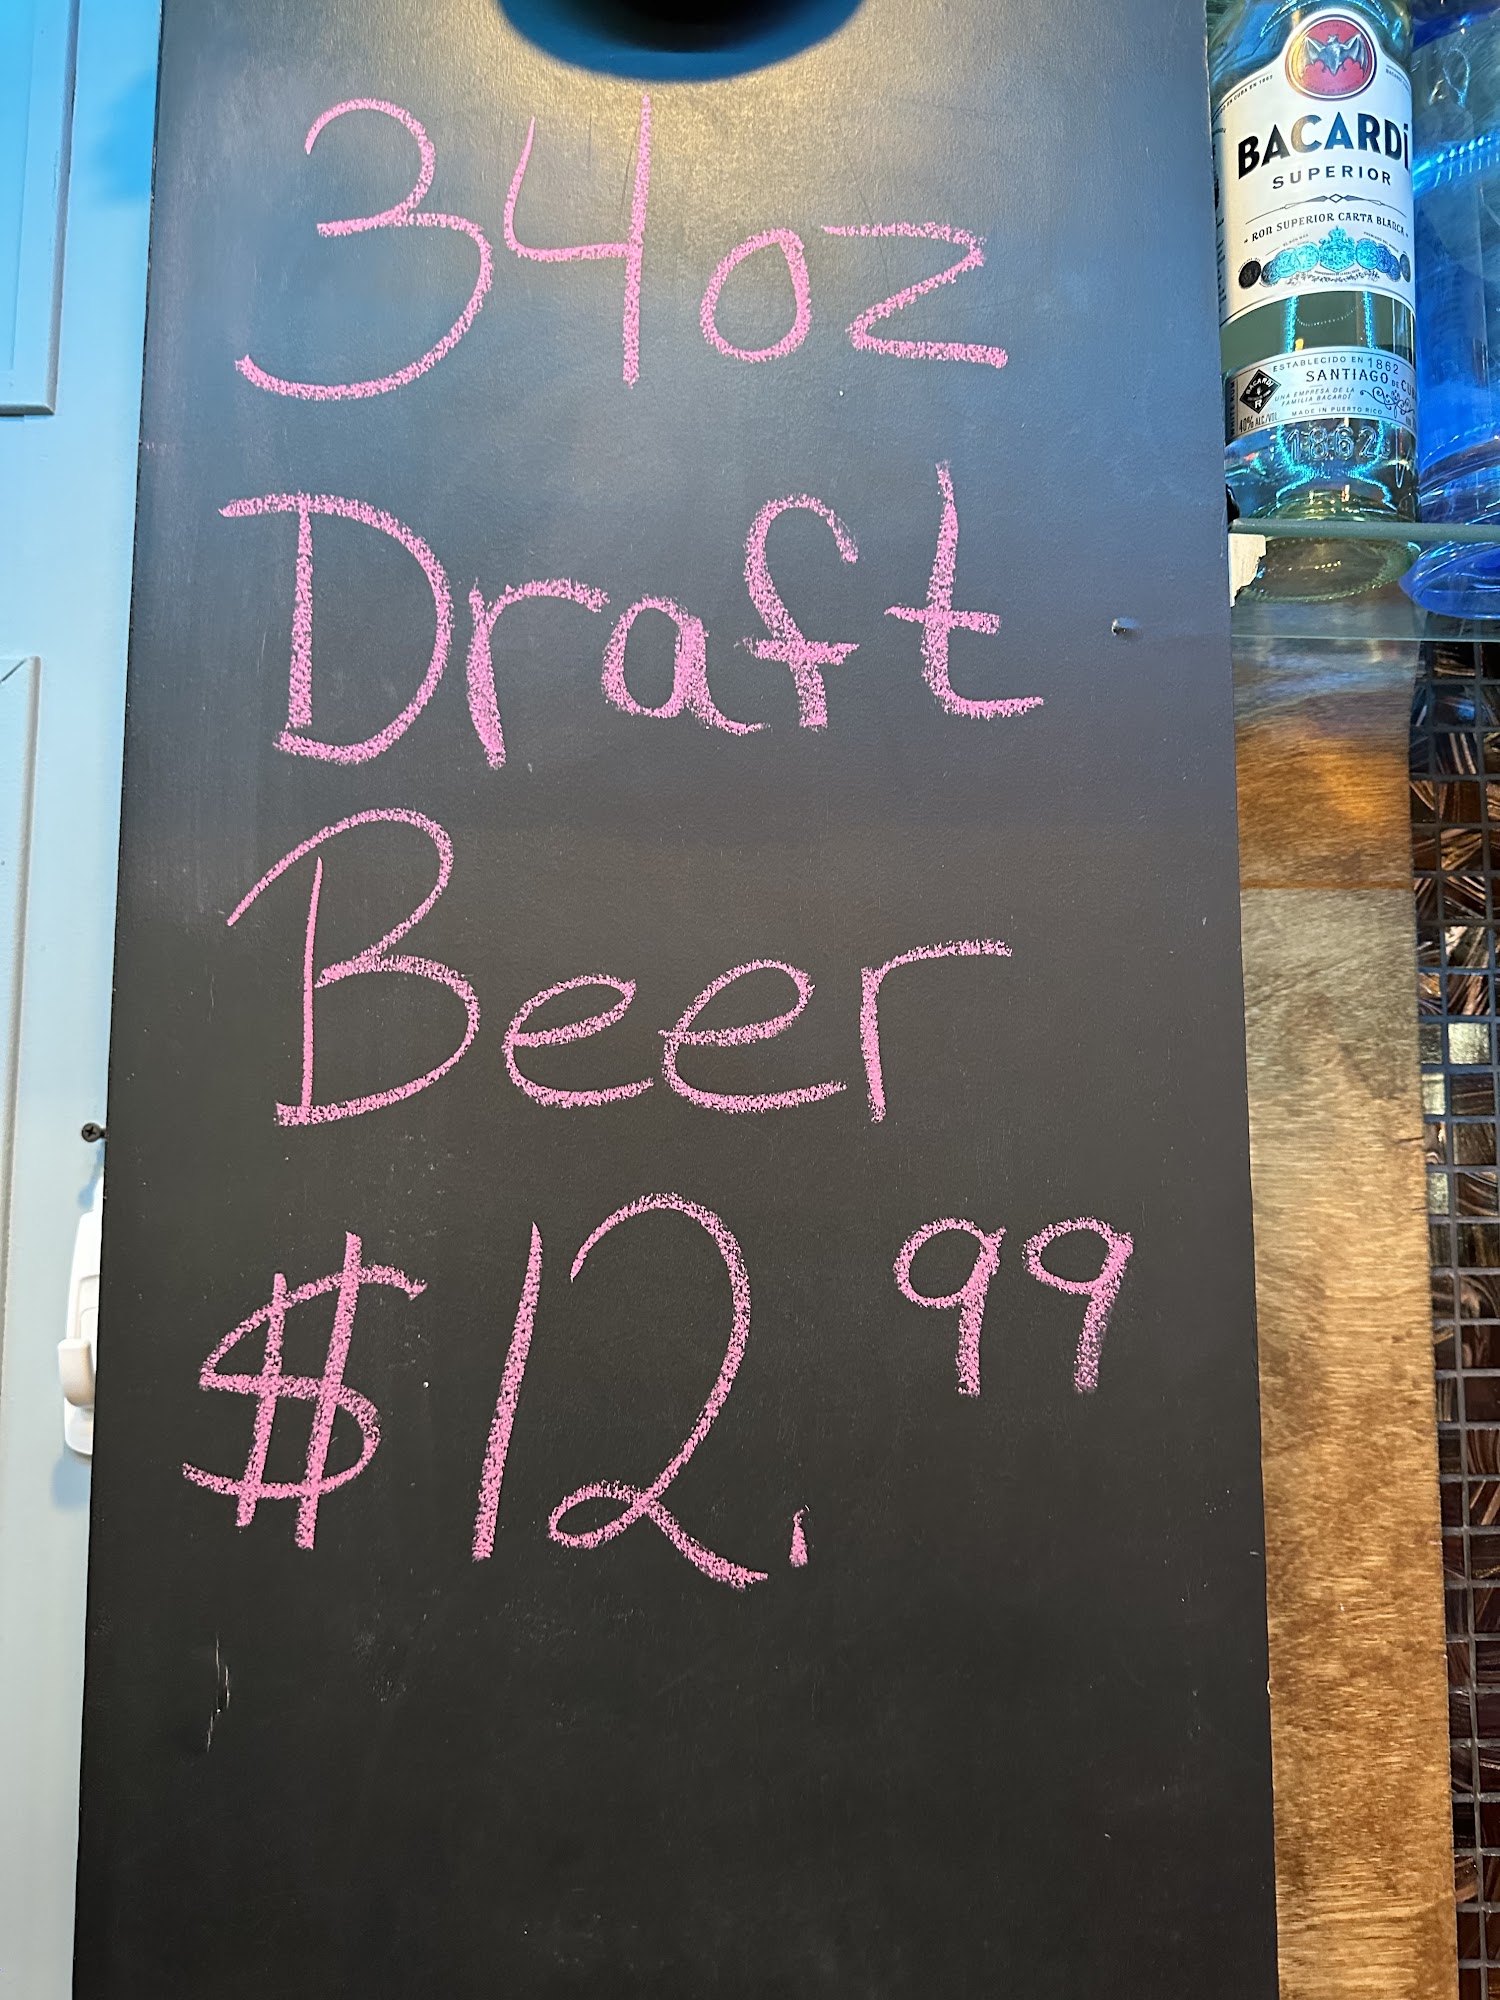 34oz
Draft
Beer
$12.99
BACARDÍ
SUPERIOR
RON SUPERIOR CARTA BLANCA
ESTABLECIDO EN 1862
SANTIAGO DE CU
UNA EMPRESA DE LA
FAMILIA BACARDÍ
MADE IN PUERTO RICO
40% ALC/VOL
1862